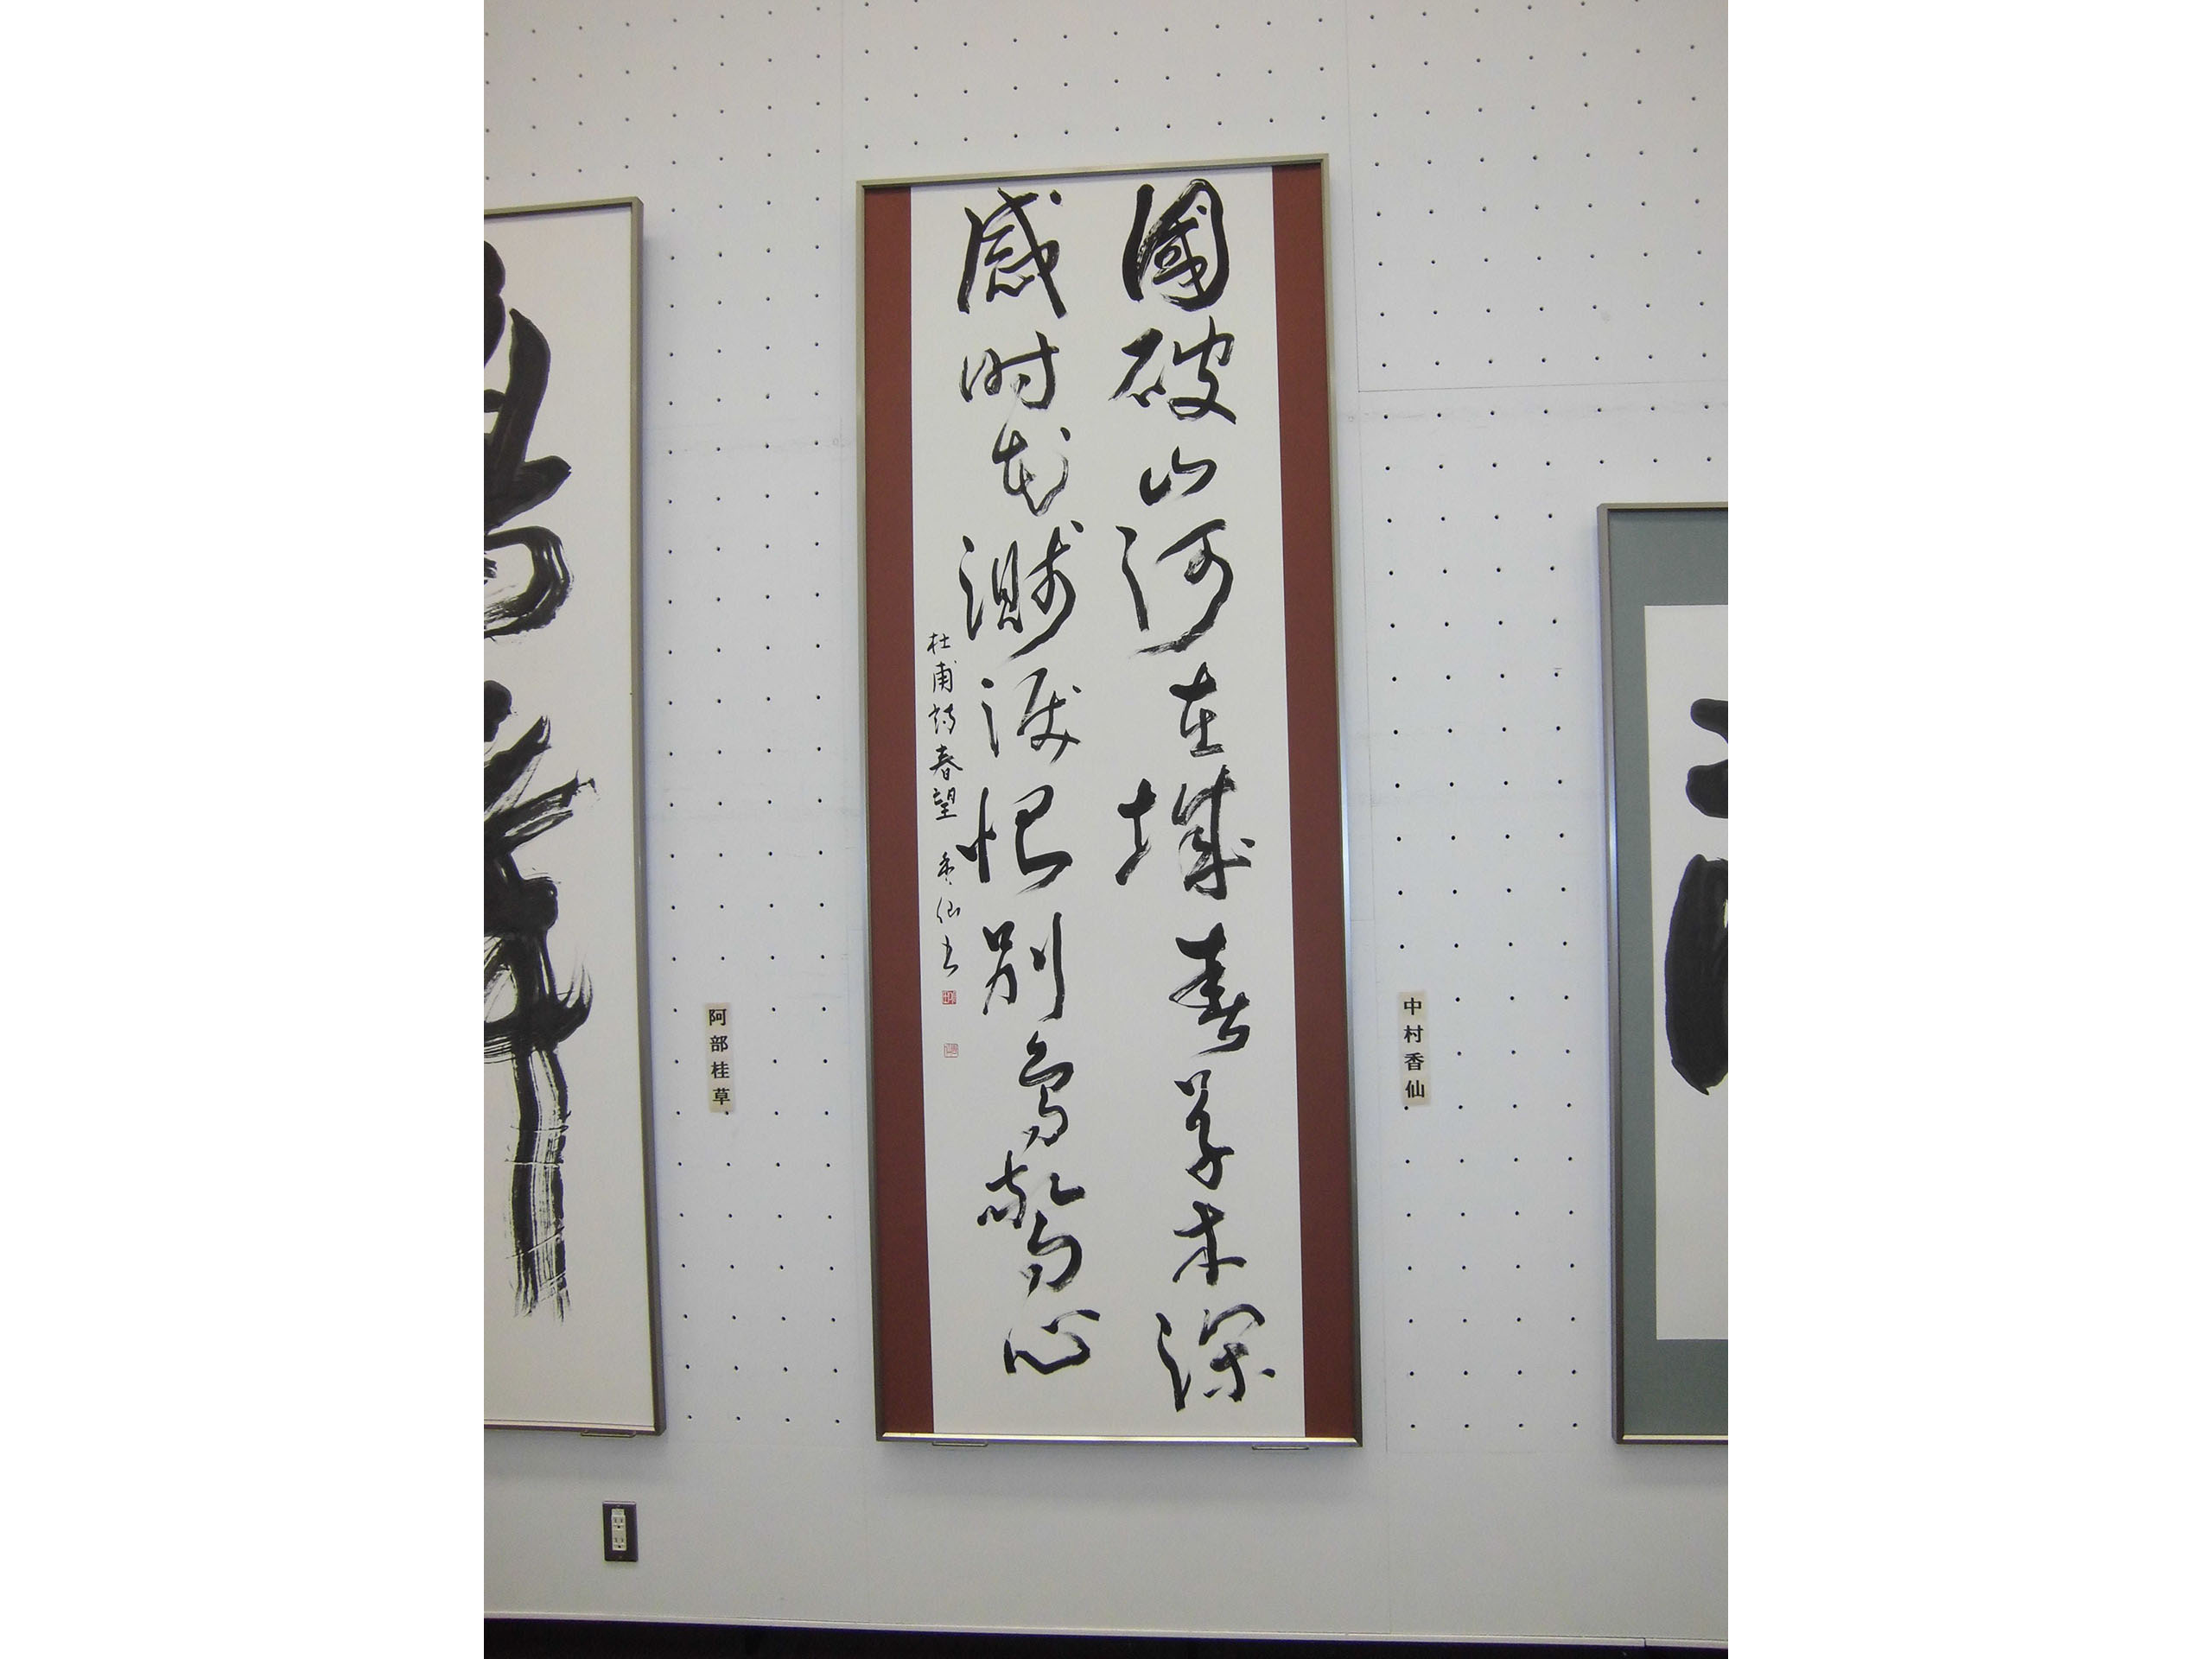 國破山河在城春草木深
感时花濺涙恨別鳥驚心
杜甫詩春望 香仙书
中村香仙
阿部桂草